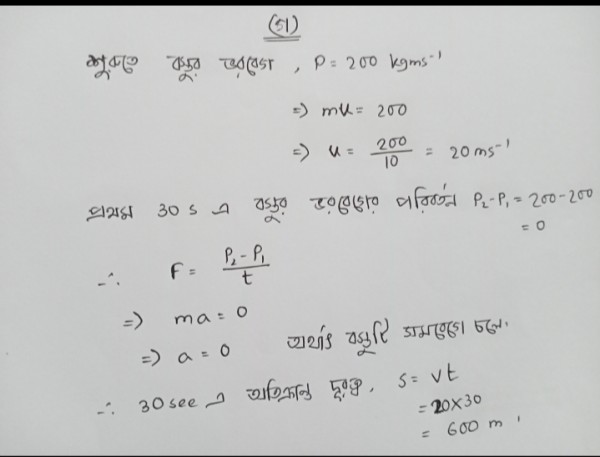 (গ)
শুরুতে বস্তুর ভরবেগ, P = 200 kgms⁻¹
=> mu = 200
=> u = 200/10 = 20 ms⁻¹
প্রথম 30 s এ বস্তুর ভরবেগের পরিবর্তন P₂-P₁ = 200-200
= 0
∴ F = (P₂-P₁)/t
=> ma = 0
=> a = 0 অর্থাৎ বস্তুটি সমবেগে চলে.
∴ 30 sec এ অতিক্রান্ত দূরত্ব, s = vt
= 20×30
= 600 m.